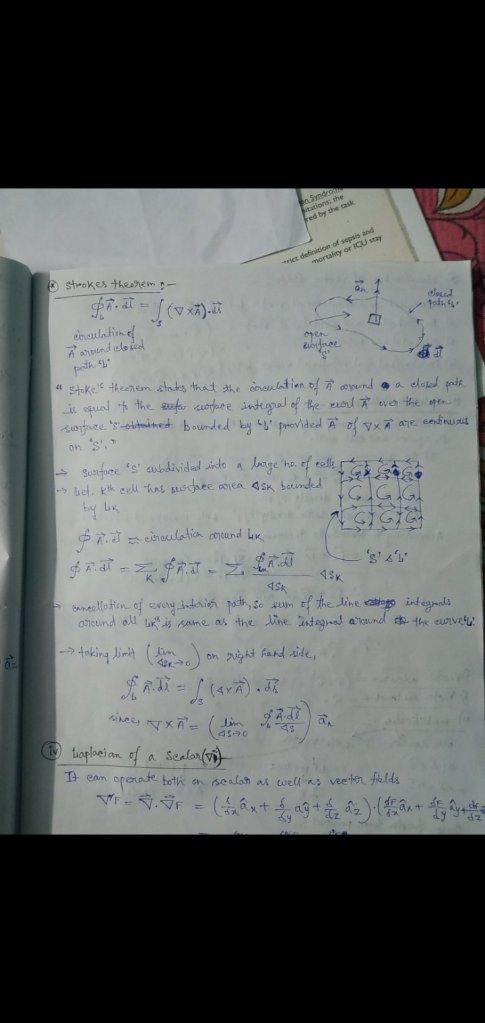 on Syndrome
itations; the
red by the task
rict definition of sepsis and
mortality or ICU stay
* Strokes theorem :-
∮_L A⃗ · dl⃗ = ∫_S (∇ × A⃗) · ds⃗
circulation of
A⃗ around closed
path "L"
a⃗n
closed
path 'L'
open
surface
'S'
dl⃗
" Stoke's theorem states that the circulation of A⃗ around a closed path
is equal to the surface integral of the curl A⃗ over the open
surface 'S' obtained bounded by 'L' provided A⃗ of ∇ × A⃗ are continuous
on 'S'. "
→ surface 'S' subdivided into a large no. of cells
→ Let. Kth cell has surface area ΔSK bounded
by LK
∮ A⃗. dl⃗ = circulation around LK
∮ A⃗. dl⃗ = Σ_K ∮ A⃗. dl⃗ = Σ ∮_LK A⃗. dl⃗ / ΔSK ΔSK
'S' & 'L'
→ cancellation of every interior path, so sum of the line integrals
around all LK's is same as the line integral around the curve 'L'.
→ taking limit (lim ΔSK→0) on right hand side,
∮_L A⃗. dl⃗ = ∫_S (∇ × A⃗) . ds⃗
since, ∇ × A⃗ = (lim ΔS→0 ∮_L A⃗. dl⃗ / ΔS) a⃗n
(iv) Laplacian of a Scalar
It can operate both on scalar as well as vector fields
∇²F = ∇⃗. ∇⃗F = (δ/δx âx + δ/δy ây + δ/δz âz) . (δF/δx âx + δF/δy ây + δF/δz
a⃗z